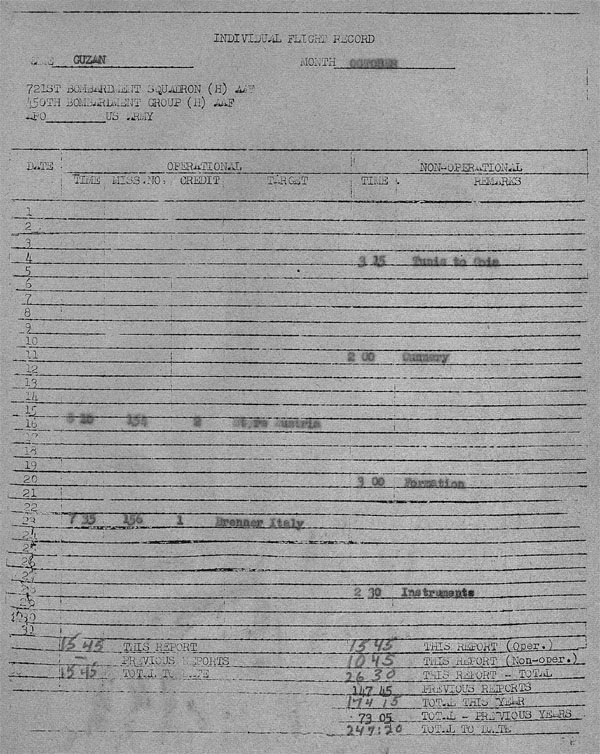 INDIVIDUAL FLIGHT RECORD
GUZAN MONTH OCTOBER
721ST BOMBARDMENT SQUADRON (H) AAF
450TH BOMBARDMENT GROUP (H) AAF
APO US ARMY
DATE OPERATIONAL NON-OPERATIONAL
TIME MISS.NO. CREDIT TARGET TIME REMARKS
1
2
3
4 3 15 Tunis to
5
6
7
8
9
10
11 2 00 Gunnery
12
13
14
15
16 154 2 Austria
17
18
19
20 3 00 Formation
21
22
23 7 35 156 1 Brenner Italy
2 30 Instruments
15 45 THIS REPORT 15 45 THIS REPORT (Oper.)
PREVIOUS REPORTS 10 45 THIS REPORT (Non-oper.)
15 45 TOTAL TO DATE 26 30 THIS REPORT - TOTAL
147 45 PREVIOUS REPORTS
174 15 TOTAL THIS YEAR
73 05 TOTAL - PREVIOUS YEARS
247:20 TOTAL TO DATE